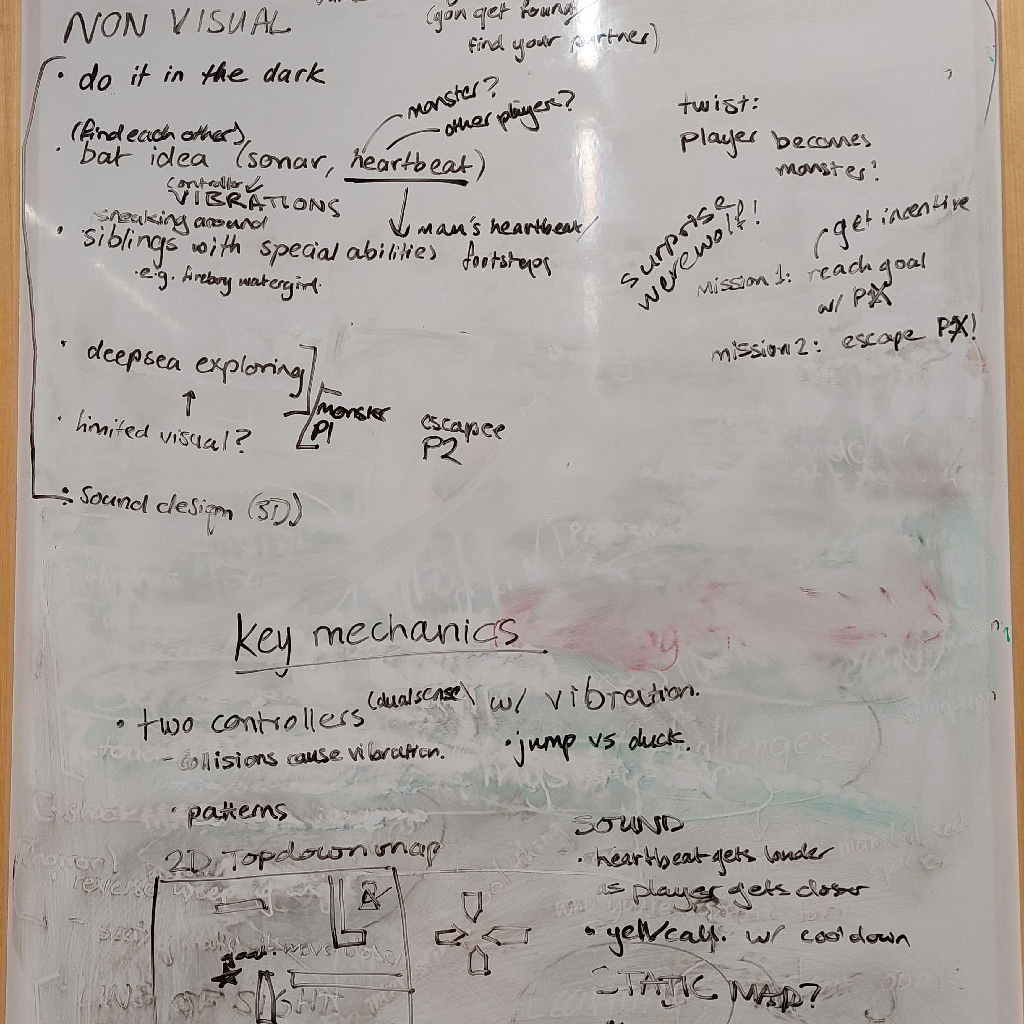 NON VISUAL
(gon get found
find your partner)
• do it in the dark
monster?
other players?
(find each other)
• bat idea (sonar, heartbeat)
controller
VIBRATIONS
man's heartbeat/
footsteps
sneaking around
• siblings with special abilities
• e.g. fireboy watergirl.
• deepsea exploring
• limited visual?
monster
P1
escapee
P2
• sound design (3D)
twist:
player becomes
monster!
surprise
werewolf!
get incentive
Mission 1: reach goal
w/ PX
mission 2: escape PX!
Key mechanics
• two controllers (dualsense) w/ vibration.
- collisions cause vibration.
• jump vs duck.
• patterns
2D Topdown map
goal
SOUND
• heartbeat gets louder
as player gets closer
• yell/call. w/ cooldown
STATIC MAP?
LINE OF SIGHT